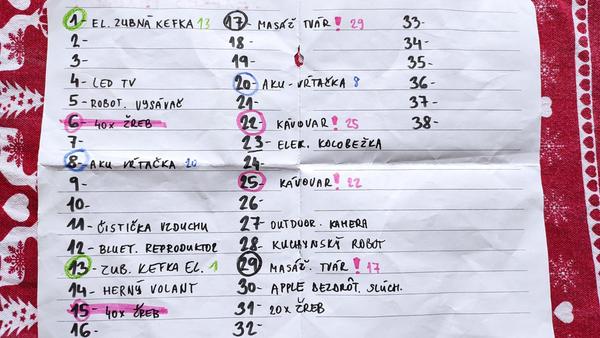 1 EL. ZUBNÁ KEFKA 13
2-
3-
4- LED TV
5- ROBOT. VYSÁVAČ
6- 40x ŽREB
7-
8- AKU VŔTAČKA 20
9-
10-
11- ČISTIČKA VZDUCHU
12- BLUET. REPRODUKTOR
13- ZUB. KEFKA EL. 1
14- HERNÝ VOLANT
15- 40x ŽREB
16-
17- MASÁŽ TVÁR! 29
18-
19-
20- AKU-VŔTAČKA 8
21-
22- KÁVOVAR! 25
23- ELEK. KOLOBEŽKA
24-
25- KÁVOVAR! 22
26-
27 OUTDOOR. KAMERA
28- KUCHYNSKÝ ROBOT
29- MASÁŽ. TVÁR! 17
30- APPLE BEZDRÔT. SLÚCH.
31- 20x ŽREB
32-
33-
34-
35-
36-
37-
38-